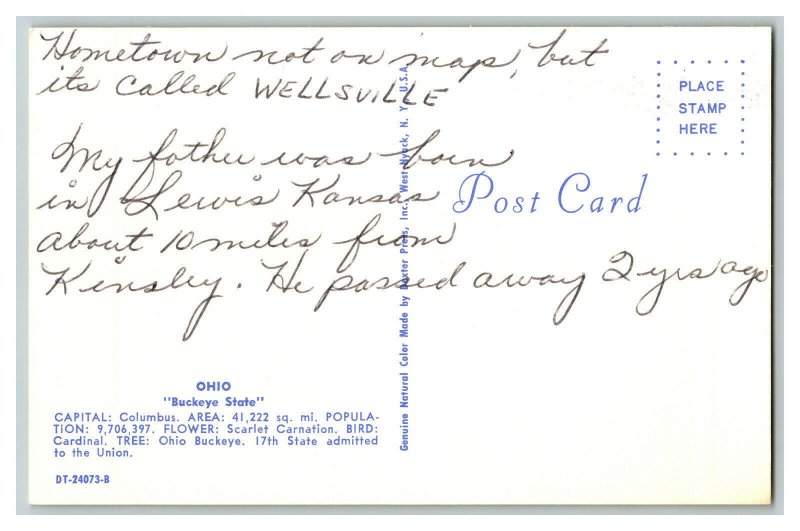 Hometown not on map, but
its called WELLSVILLE
My father was born
in Lewis Kansas
about 10 miles from
Kinsley. He passed away 2 yrs ago
PLACE
STAMP
HERE
Post Card
Genuine Natural Color Made by Dexter Press, Inc. West Nyack, N. Y. U.S.A.
OHIO
"Buckeye State"
CAPITAL: Columbus. AREA: 41,222 sq. mi. POPULA-
TION: 9,706,397. FLOWER: Scarlet Carnation. BIRD:
Cardinal. TREE: Ohio Buckeye. 17th State admitted
to the Union.
DT-24073-B